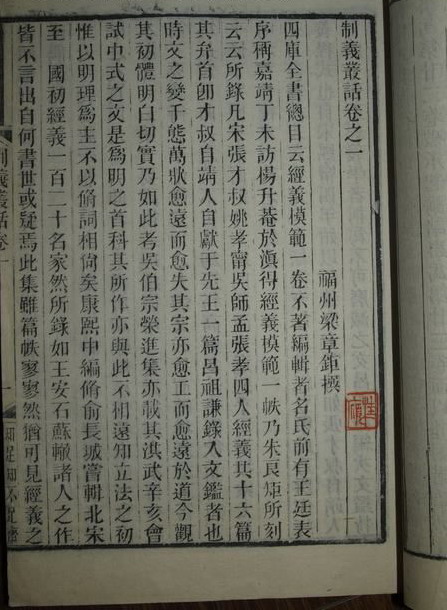 制義叢話卷之一
福州梁章鉅撰
四庫全書總目云經義模範一卷不著編輯者名氏前有王廷表
序稱嘉靖丁未訪楊升菴於滇得經義模範一帙乃朱良炬所刻
云云所錄凡宋張才叔姚孝甯吳師孟張孝四人經義共十六篇
其弁首卽才叔自靖人自獻于先王一篇呂祖謙錄入文鑑者也
時文之變千態萬狀愈遠而愈失其宗亦愈工而愈遠於道今觀
其初體明白切實乃如此考吳伯宗榮進集亦載其洪武辛亥會
試中式之文是爲明之首科其所作亦與此不相遠知立法之初
惟以明理爲主不以脩詞相尚矣康熙中編脩俞長城嘗輯北宋
至　國初經義一百二十名家然所錄如王安石蘇轍諸人之作
皆不言出自何書世或疑焉此集雖篇帙寥寥然猶可見經義之
制義叢話卷一
一
知足知不足齋